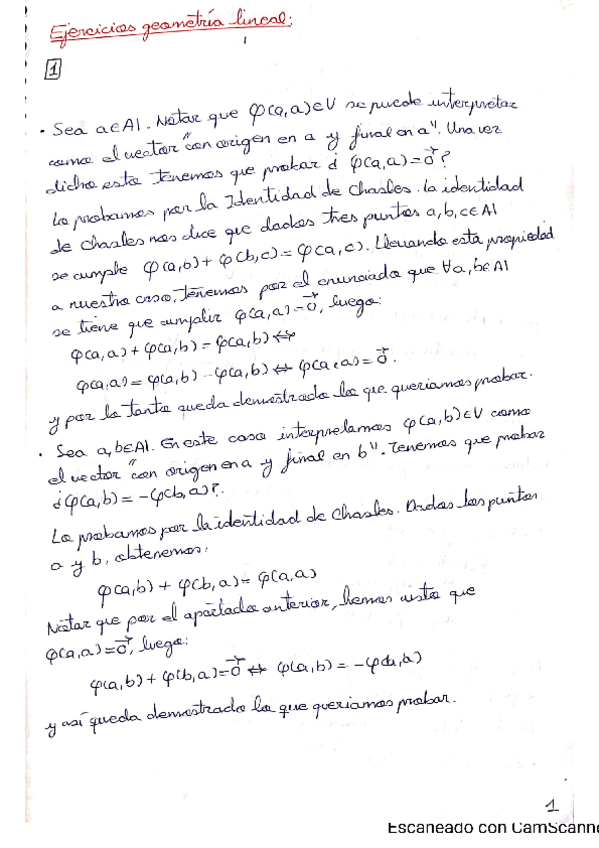 Ejercicios geometría lineal:
1
· Sea a∈A1. Notar que φ(a,a)∈V se puede interpretar
como el vector "con origen en a y final en a". Una vez
dicho esto tenemos que probar ¿ φ(a,a)=0⃗ ?
Lo probamos por la Identidad de Chasles. La identidad
de Chasles nos dice que dados tres puntos a,b,c∈A1
se cumple φ(a,b)+φ(b,c)=φ(a,c). Llevando esta propiedad
a nuestro caso, tenemos por el enunciado que ∀a,b∈A1
se tiene que cumplir φ(a,a)=0⃗, luego:
φ(a,a)+φ(a,b)=φ(a,b)⇔
φ(a,a)=φ(a,b)-φ(a,b)⇔φ(a,a)=0⃗.
y por lo tanto queda demostrado lo que queriamos probar.
· Sea a,b∈A1. En este caso interpretamos φ(a,b)∈V como
el vector "con origen en a y final en b". Tenemos que probar
¿φ(a,b)=-φ(b,a)?.
Lo probamos por la identidad de Chasles. Dados los puntos
a y b, obtenemos:
φ(a,b)+φ(b,a)=φ(a,a)
Notar que por el apartado anterior, hemos visto que
φ(a,a)=0⃗, luego:
φ(a,b)+φ(b,a)=0⃗ ⇔ φ(a,b)=-φ(b,a)
y así queda demostrado lo que queriamos probar.
1
Escaneado con CamScanne